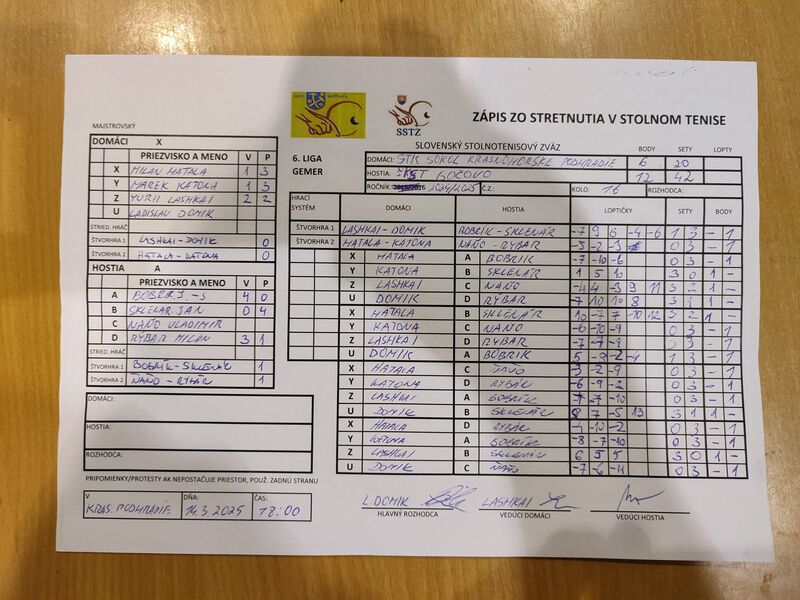 ZÁPIS ZO STRETNUTIA V STOLNOM TENISE
SSTZ
SLOVENSKÝ STOLNOTENISOVÝ ZVÄZ
BODY SETY LOPTY
6. LIGA
GEMER
DOMÁCI: STK SOKOL KRASNOHORSKE PODHRADIE 6 20
HOSTIA: GOČOVO 12 42
ROČNÍK: 2024/2025 Č.Z.: KOLO: 16 ROZHODCA:
MAJSTROVSKÝ
DOMÁCI X
PRIEZVISKO A MENO V P
X MILAN HATALA 1 3
Y MAREK KATONA 1 3
Z YURII LASHKAI 2 2
U LADISLAV DOMIK
STRIED. HRÁČ
ŠTVORHRA 1 LASHKAI-DOMIK 0
ŠTVORHRA 2 HATALA-KATONA 0
HOSTIA A
PRIEZVISKO A MENO V P
A BOBRIK 4 0
B SKLENAR JAN 0 4
C NAŇO VLADIMIR
D RYBAR MILAN 3 1
STRIED. HRÁČ
ŠTVORHRA 1 BOBRÍK-SKLENÁR 1
ŠTVORHRA 2 NAŇO-RYBÁR 1
DOMÁCI:
HOSTIA:
ROZHODCA:
PRIPOMIENKY/PROTESTY AK NEPOSTAČUJE PRIESTOR, POUŽ. ZADNÚ STRANU
V DŇA: ČAS:
KRAS. PODHRADIE 14.3 2025 18:00
HRACÍ SYSTÉM DOMÁCI HOSTIA LOPTIČKY SETY BODY
ŠTVORHRA 1 LASHKAI-DOMIK BOBRIK-SKLENÁR -7 9 6 -4 -6 1 3 - 1
ŠTVORHRA 2 HATALA-KATONA NAŇO-RYBAR -5 -2 -3 0 3 - 1
X HATALA A BOBRIK -7 -10 -6 0 3 - 1
Y KATONA B SKLENÁR 1 5 10 3 0 1 -
Z LASHKAI C NAŇO -4 4 -3 9 11 3 2 1 -
U DOMIK D RYBAR -7 10 10 8 3 1 1 -
X HATALA B SKLENÁR 10 -7 -7 10 12 3 2 1 -
Y KATONA C NAŇO -6 -10 -9 0 3 - 1
Z LASHKAI D RYBÁR -7 -7 -9 0 3 - 1
U DOMIK A BOBRIK 5 -9 -2 -4 1 3 - 1
X HATALA C -3 -2 -9 0 3 - 1
Y KATONA D RYBÁR -6 -9 -2 0 3 - 1
Z LASHKAI A BOBRÍK -7 -7 -10 0 3 - 1
U DOMIK B SKLENÁR 8 7 -5 13 3 1 1 -
X HATALA D RYBÁR -10 -2 0 3 - 1
Y KATONA A BOBRÍK -8 -7 -10 0 3 - 1
Z LASHKAI B SKLENÁR 6 5 5 3 0 1 -
U DOMIK C NAŇO -7 -6 0 3 - 1
L. DOMIK LASHKAI
HLAVNÝ ROZHODCA VEDÚCI DOMÁCI VEDÚCI HOSTIA